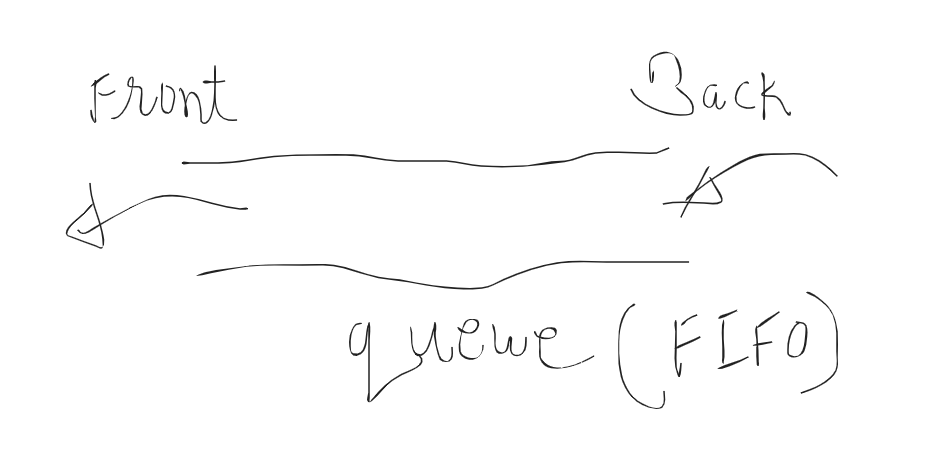 Front Back
queue (FIFO)